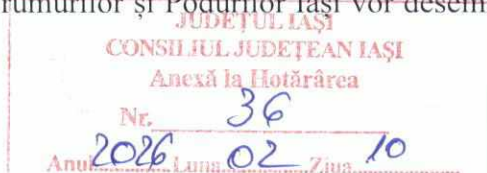 rumurilor și Podurilor Iași vor desem
JUDEȚUL IAȘI
CONSILIUL JUDEȚEAN IAȘI
Anexă la Hotărârea
Nr. 36
Anul 2026 Luna 02 Ziua 10